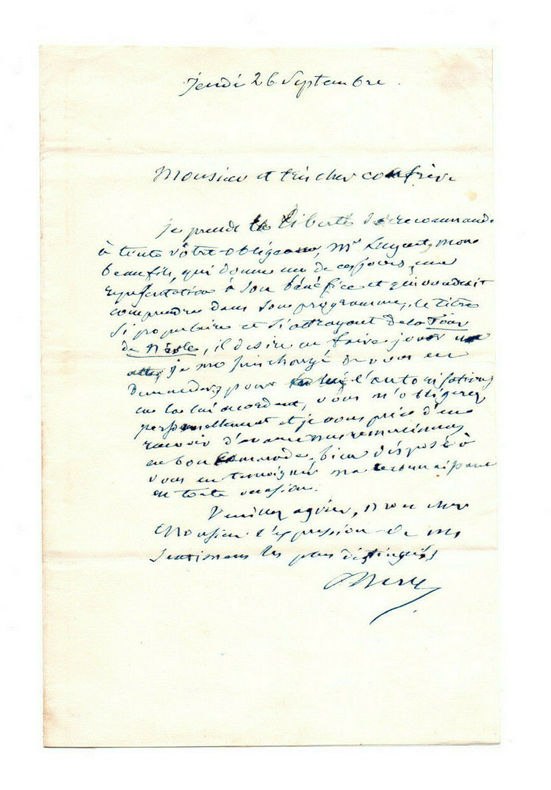 Jeudi 26 Septembre.
Monsieur et très cher confrère
Je prends la liberté de recommander
à toute votre obligeance, Mr Luguet, mon
beau fils, qui donne un de ces jours, une
représentation à son bénéfice et qui voudrait
comprendre dans son programme, le titre
si populaire et si attrayant de la Tour
de Nesle, il désire en faire jouer un
acte, je me suis chargé de vous en
demander pour lui l'autorisation,
en la lui accordant, vous m'obligerez
personnellement et je vous prie d'en
recevoir d'avance mes remerciemens
en bon camarade, bien disposé à
vous en témoigner ma reconnaissance
en toute occasion.
Veuillez agréer, mon cher
Monsieur l'expression de mes
sentimens les plus distingués